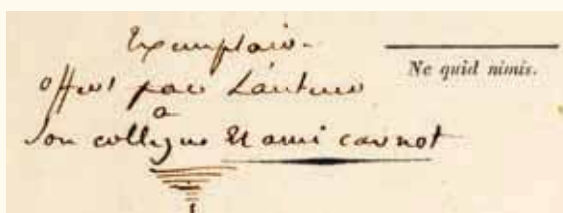 Exemplaire
offert par L'auteur
a
son collegue et ami carnot
Ne quid nimis.